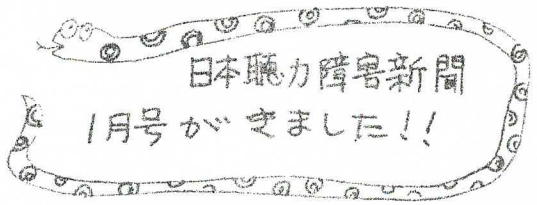 日本聴力障害新聞
1月号がきました!!